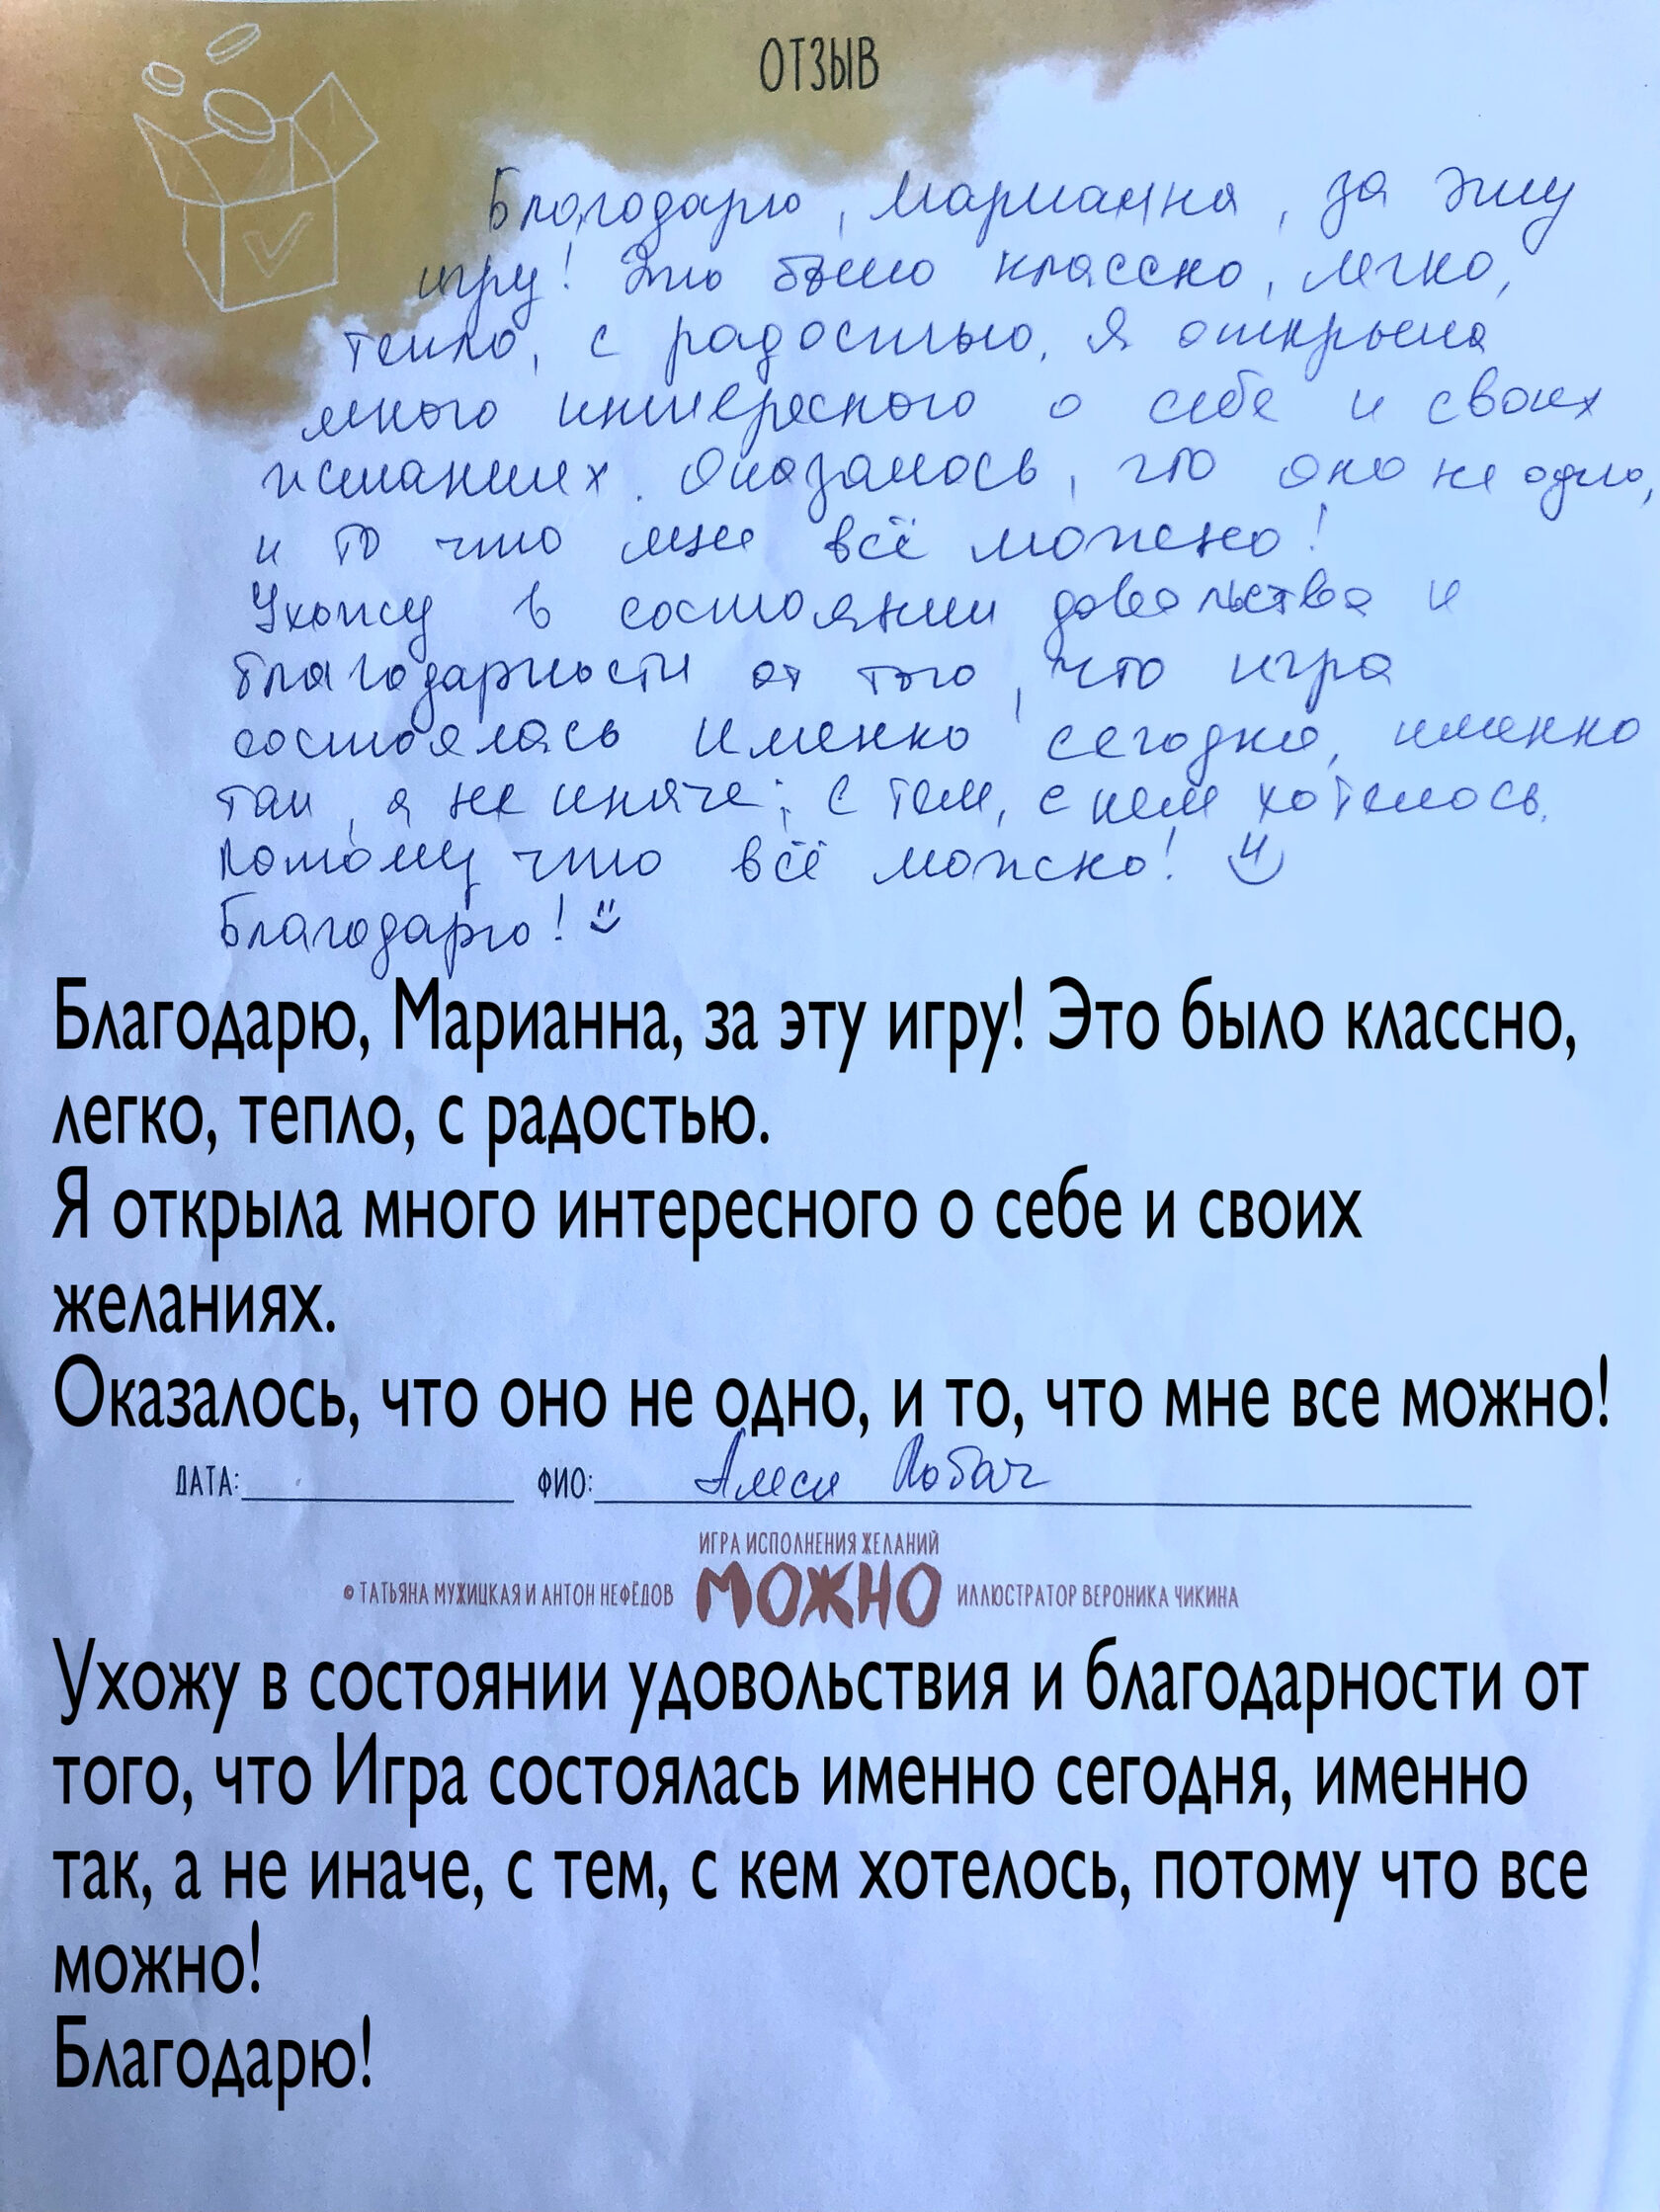 ОТЗЫВ
Благодарю, Марианна, за эту
игру! Это было классно, легко,
тепло, с радостью. Я открыла
много интересного о себе и своих
желаниях. Оказалось, что оно не одно,
и то что мне всё можно!
Ухожу в состоянии довольства и
благодарности от того, что игра
состоялась именно сегодня, именно
так, а не иначе; с тем, с кем хотелось.
Потому что всё можно!
Благодарю!
Благодарю, Марианна, за эту игру! Это было классно,
легко, тепло, с радостью.
Я открыла много интересного о себе и своих
желаниях.
Оказалось, что оно не одно, и то, что мне все можно!
ДАТА: ФИО: Алеся Лобач
ИГРА ИСПОЛНЕНИЯ ЖЕЛАНИЙ
© ТАТЬЯНА МУЖИЦКАЯ И АНТОН НЕФЁДОВ МОЖНО ИЛЛЮСТРАТОР ВЕРОНИКА ЧИКИНА
Ухожу в состоянии удовольствия и благодарности от
того, что Игра состоялась именно сегодня, именно
так, а не иначе, с тем, с кем хотелось, потому что все
можно!
Благодарю!